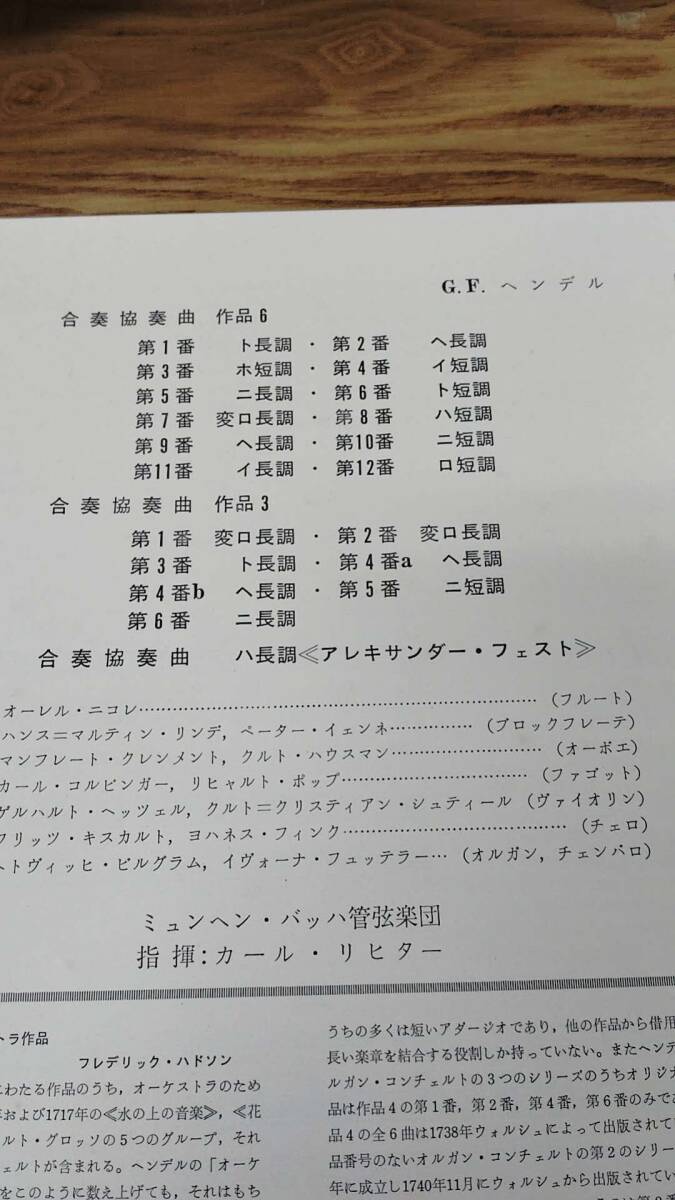 G.F. ヘンデル
合奏協奏曲 作品6
第1番 ト長調・第2番 ヘ長調
第3番 ホ短調・第4番 イ短調
第5番 ニ長調・第6番 ト短調
第7番 変ロ長調・第8番 ハ短調
第9番 ヘ長調・第10番 ニ短調
第11番 イ長調・第12番 ロ短調
合奏協奏曲 作品3
第1番 変ロ長調・第2番 変ロ長調
第3番 ト長調・第4番a ヘ長調
第4番b ヘ長調・第5番 ニ短調
第6番 ニ長調
合奏協奏曲 ハ長調≪アレキサンダー・フェスト≫
オーレル・ニコレ……(フルート)
ハンス=マルティン・リンデ, ペーター・イェンネ……(ブロックフレーテ)
マンフレート・クレンメント, クルト・ハウスマン……(オーボエ)
カール・コルビンガー, リヒャルト・ポップ……(ファゴット)
ゲルハルト・ヘッツェル, クルト=クリスティアン・シュティール (ヴァイオリン)
フリッツ・キスカルト, ヨハネス・フィンク……(チェロ)
ヘトヴィッヒ・ビルグラム, イヴォーナ・フュッテラー…(オルガン, チェンバロ)
ミュンヘン・バッハ管弦楽団
指揮:カール・リヒター
トラ作品
フレデリック・ハドソン
にわたる作品のうち, オーケストラのため
年および1717年の≪水の上の音楽≫, ≪花
ルト・グロッソの5つのグループ, それ
ェルトが含まれる。ヘンデルの「オーケ
をこのように数え上げても, それはもち
うちの多くは短いアダージオであり, 他の作品から借用
長い楽章を結合する役割しか持っていない。またヘンデ
ルガン・コンチェルトの3つのシリーズのうちオリジ
品は作品4の第1番, 第2番, 第4番, 第6番のみであ
品4の全6曲は1738年ウォルシュによって出版されて
品番号のないオルガン・コンチェルトの第2のシリー
年に成立し1740年11月にウォルシュから出版されてい